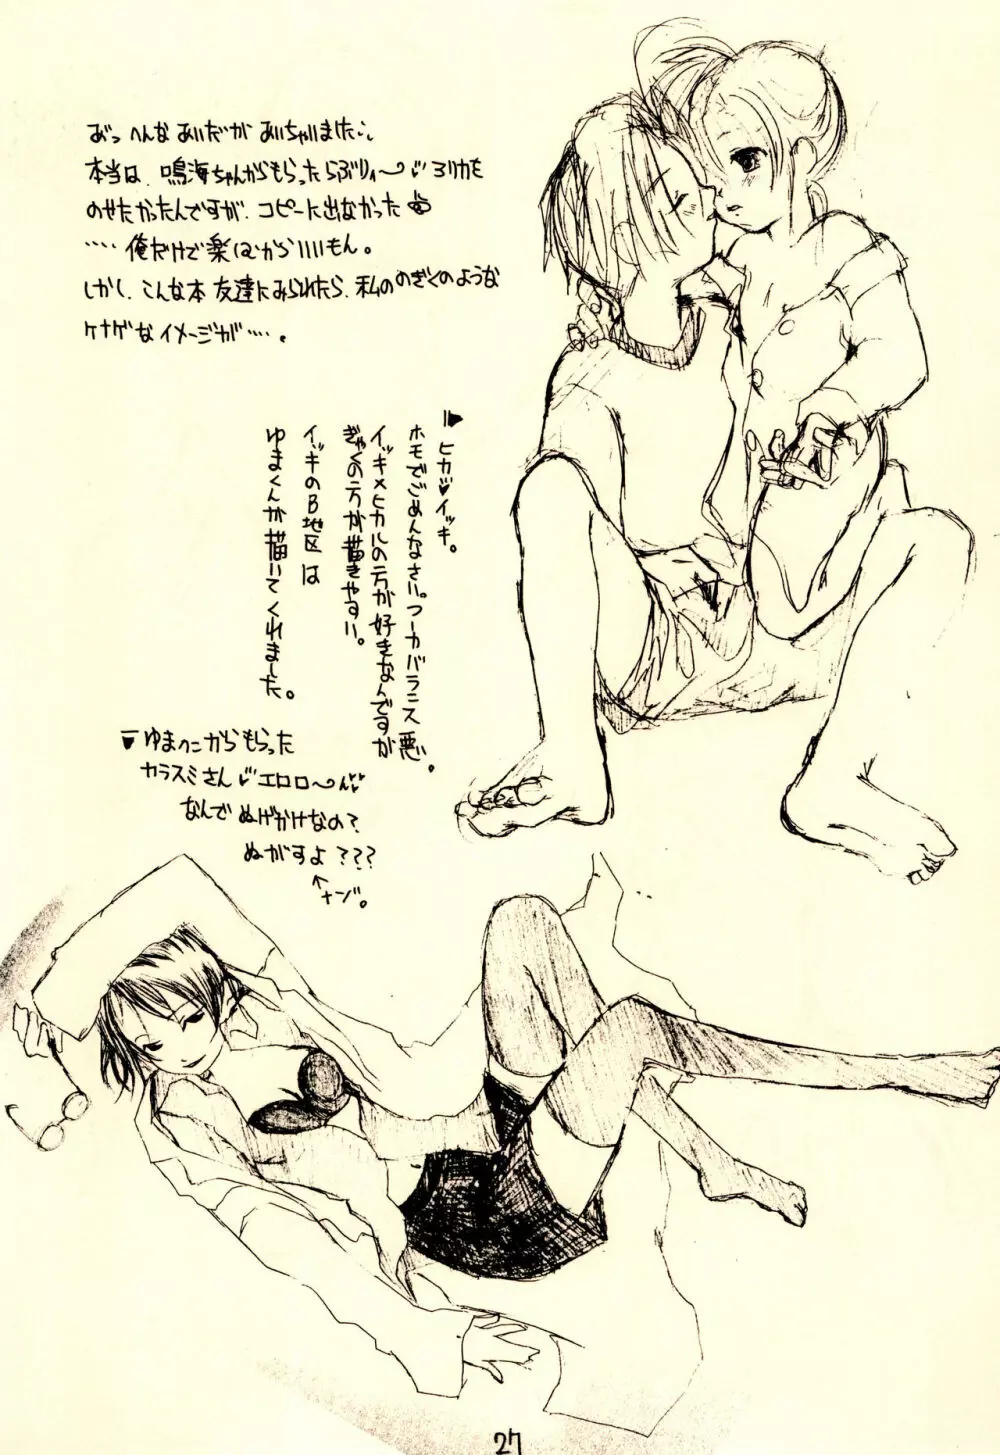 おっ へんな あいだが あいちゃいました。
本当は、鳴海ちゃんからもらった らぶりぃ〜♡ ユリカを
のせたかったんですが、コピーに出なかった
‥‥ 俺だけで楽しむからいいもん。
しかし、こんな本 友達にみられたら、私の のぎくのような
ケナゲな イメージが‥‥。
ヒカ♡イッキ。
ホモでごめんなさい。つーかバランス悪い。
イッキ×ヒカルの方が好きなんですが
ぎゃくの方が描きやすい。
イッキのB地区は
ゆまくんが描いてくれました。
ゆまっこからもらった
カラスミさん♡エロロ〜ん♡
なんで ぬげかけなの?
ぬがすよ???
↑ナゾ。
27